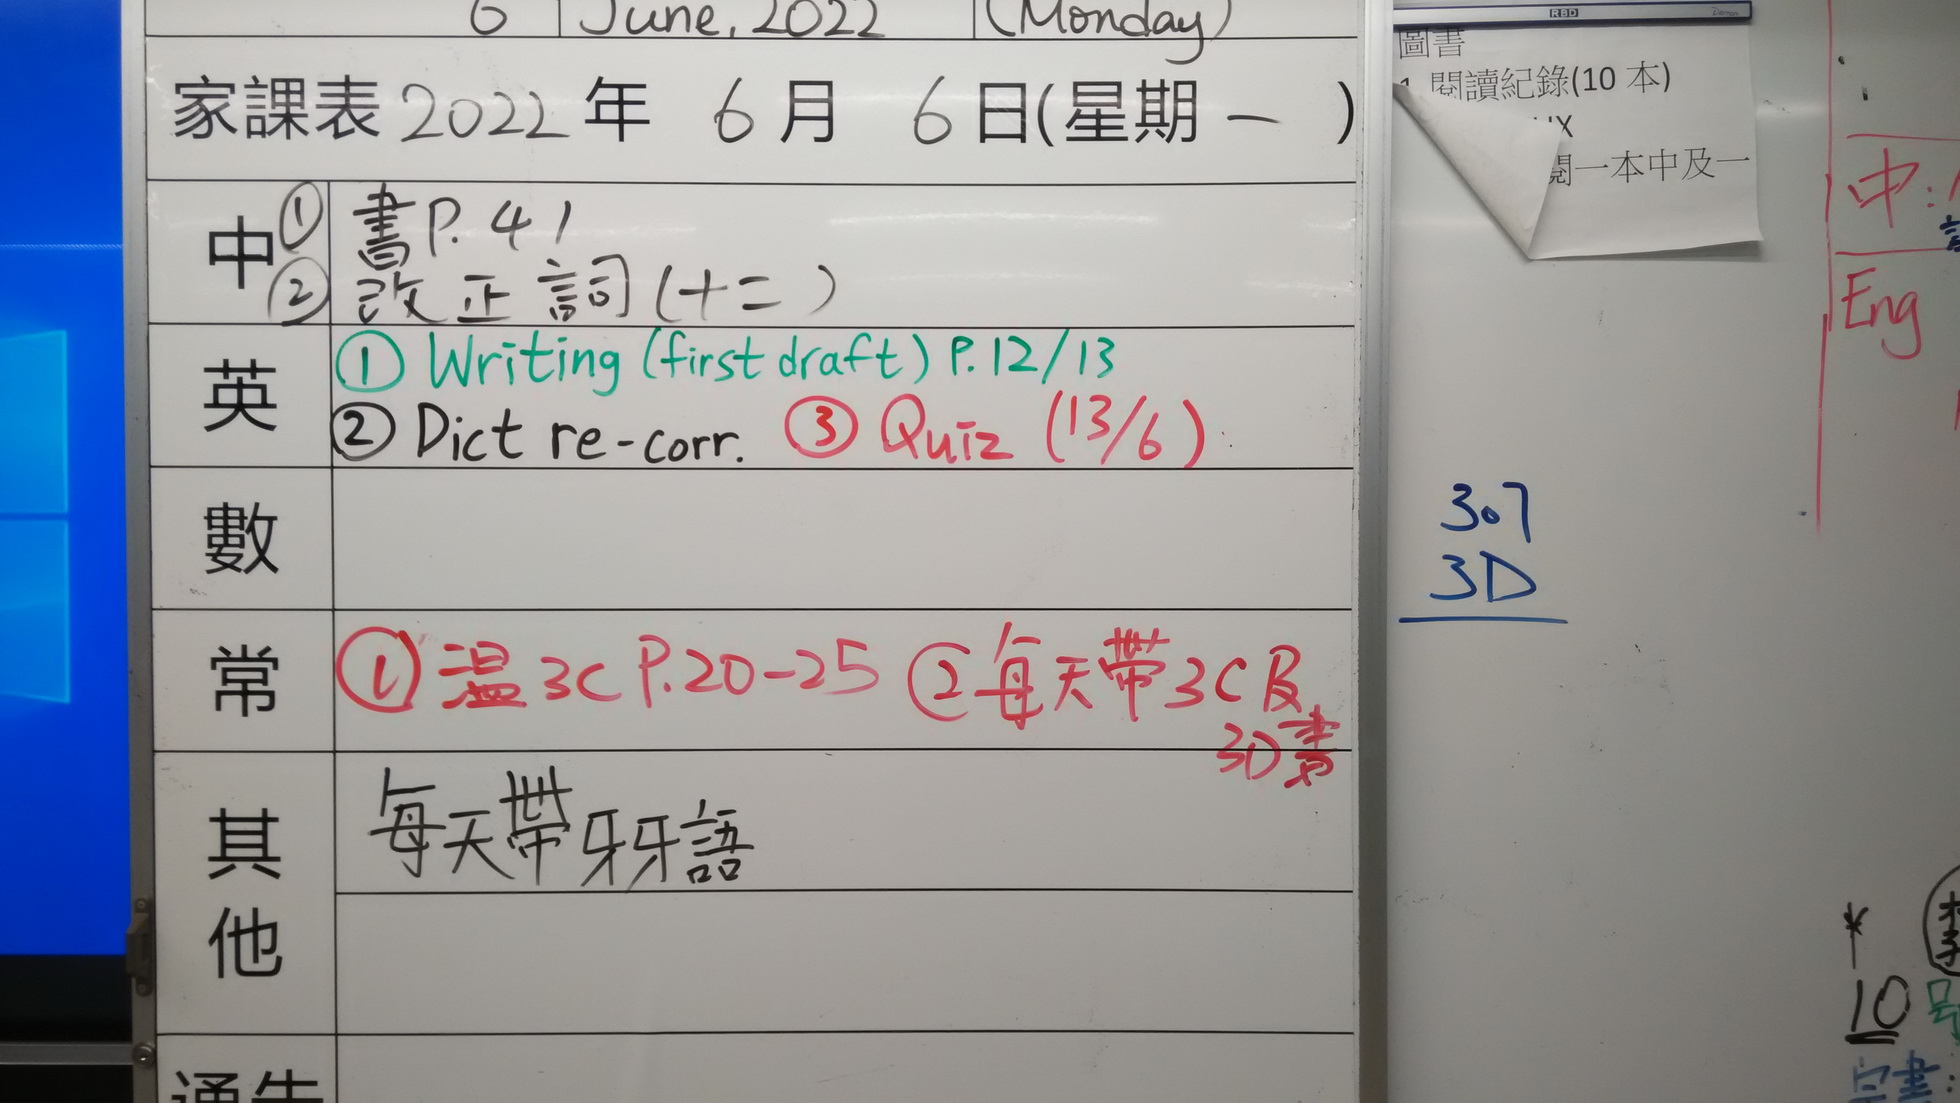 6 June, 2022 (Monday)
家課表 2022 年 6 月 6 日(星期 一 )
中 ① 書 P. 41
② 改正詞(十二)
英 ① Writing (first draft) P. 12/13
② Dict re-corr. ③ Quiz (13/6)
數
常 ① 溫 3C P.20-25 ② 每天帶 3C 及
3D書
其他 每天帶牙牙語
通告
RBD
圖書
1. 閱讀紀錄(10 本)
閱一本中及一
3.7
3D
中:
Eng
*
10